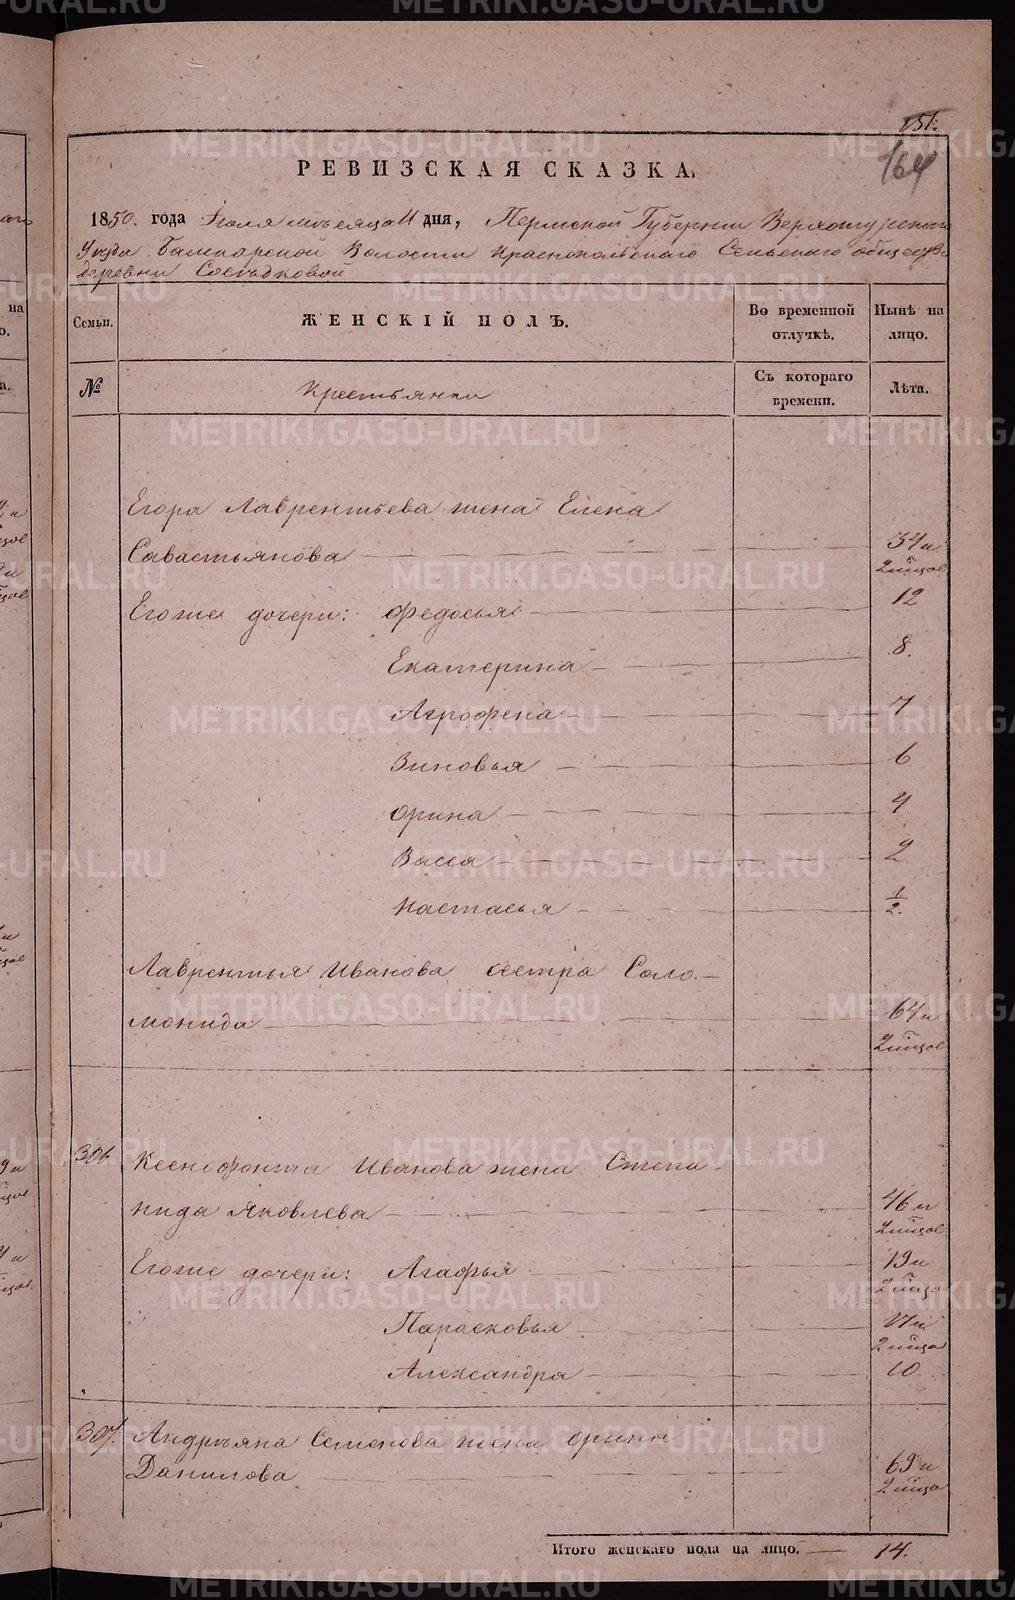 METRIKI.GASO-URAL.RU
151.
164
РЕВИЗСКАЯ СКАЗКА.
1850. года Іюля мѣсяца 11 дня, Пермской Губерніи Верхотурскаго
Уѣзда Башкарской Волости Краснопольскаго Сельскаго общества
деревни Сосѣдковой
Семьи. ЖЕНСКІЙ ПОЛЪ. Во временной отлучкѣ. Нынѣ на лицо.
№ Крестьянки Съ котораго времени. Лѣта.
Егора Лаврентьева жена Елена
Савастьянова 34 и
Егоже дочери: Федосья 12
Екатерина 8.
Агрофена 7
Зиновья 6
Орина 4
Васса 2
Настасья 1/2.
Лаврентья Иванова сестра Соло-
монида 64 и
306 Ксенофонта Иванова жена Степа-
нида Яковлева 46 и
Егоже дочери: Агафья 19 и
Парасковья 17 и
Александра 10
307. Андреяна Семенова жена Орина
Данилова 69 и
Итого женскаго пола на лицо. 14.